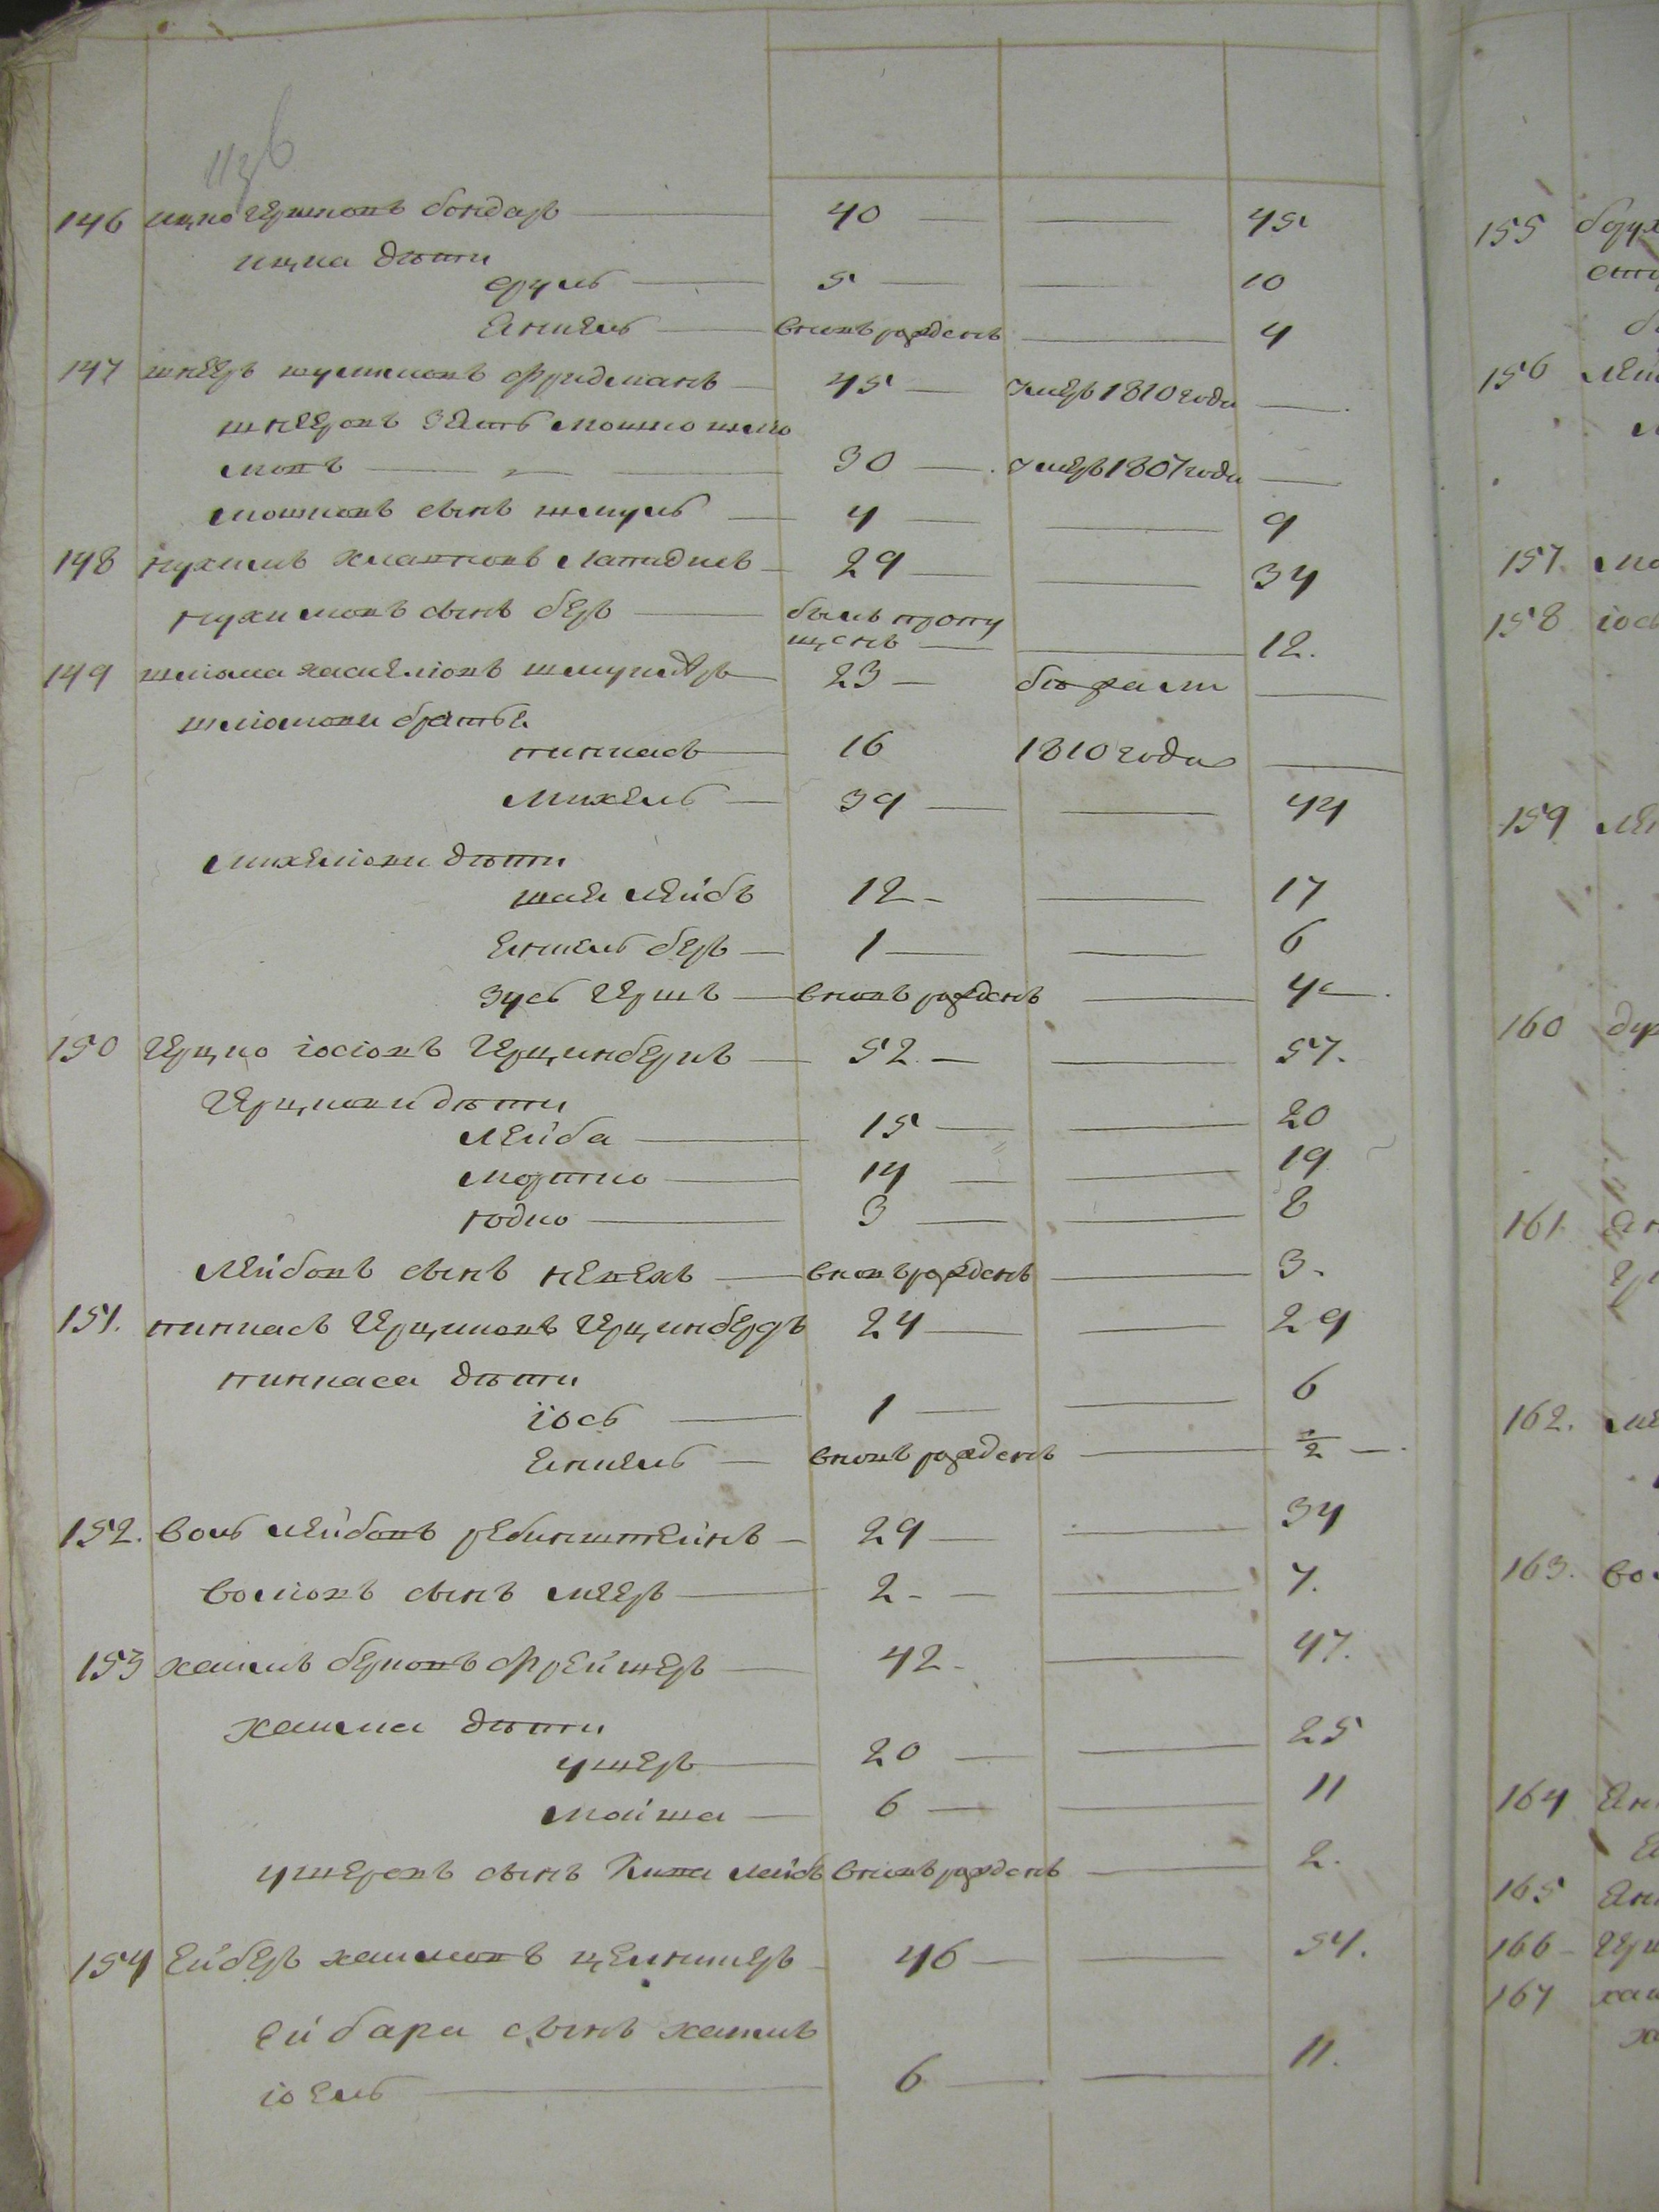 146 ицко гершковъ бондаръ — 40 — — 45
ицка дѣти
сруль — 5 — — 10
Янкель — вновь рожденъ — 4
147 шнеєръ шулимовъ фридманъ — 45 — умеръ 1810 года —
шнееровъ зять мошко шмо
мовъ — 30 — умеръ 1807 года —
мошковъ сынъ шмуль — 4 — — 9
148 нухимъ хмавновъ лапидисъ — 29 — — 34
нухимовъ сынъ беръ — былъ пропу
щенъ — — 12.
149 шліома хаскеліовъ шмуклеръ — 23 — бѣжали —
шліомови братья
пинкасъ — 16 1810 года —
михель — 39 — — 44
михеліови дѣти
шая лейбъ 12 — — 17
Янкель беръ — 1 — — 6
зусь гершъ — вновь рожденъ — 4 —
150 герцко іосіовъ герцинбергъ — 52 — — 57.
герцкови дѣти
лейба — 15 — — 20
мортко — 14 — — 19
юдко — 3 — — 8
лейбовъ сынъ — вновь рожденъ — 3.
151. пинкасъ герцковъ герцинбергъ 24 — — 29
пинкаса дѣти
іось — 1 — — 6
Янкель — вновь рожденъ — 1/2 —
152. воль лейбовъ ребинштейнъ — 29 — — 34
воліовъ сынъ мееръ — 2 — — 7.
153 хаимъ берковъ фрейшеръ — 42 — — 47.
хаима дѣти
ушеръ — 20 — — 25
мойша — 6 — — 11
ушеровъ сынъ Кива лейбъ вновь рожденъ — 2.
154 Ейберъ хаимовъ — 46 — — 51.
Ейбера сынъ хаимъ
іоель — 6 — — 11.
155
156
157.
158
159
160
161.
162.
163.
164
165
166
167